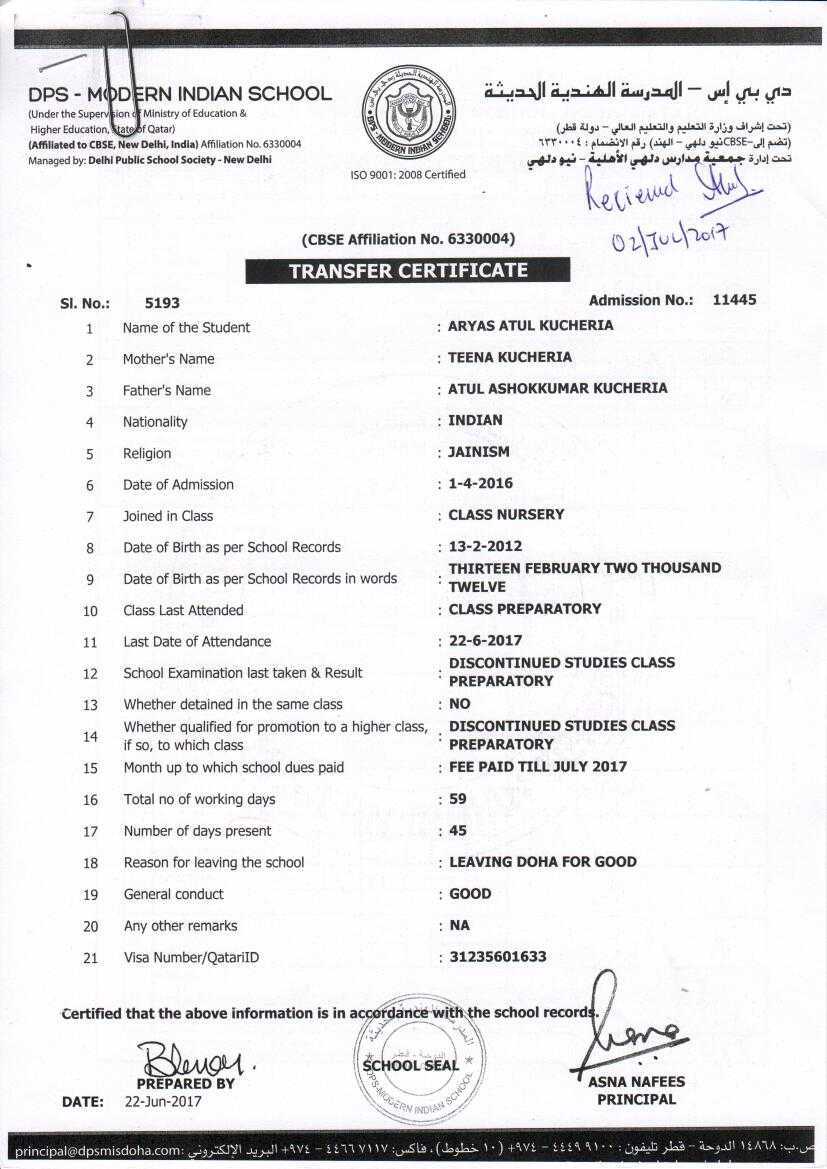 DPS - MODERN INDIAN SCHOOL
(Under the Supervision of Ministry of Education &
Higher Education, State of Qatar)
(Affiliated to CBSE, New Delhi, India) Affiliation No. 6330004
Managed by: Delhi Public School Society - New Delhi
DPS - MODERN INDIAN SCHOOL
ISO 9001: 2008 Certified
دي بي إس – المدرسة الهندية الحديثة
(تحت إشراف وزارة التعليم والتعليم العالي – دولة قطر)
(تضم إلى-CBSE نيو دلهي – الهند) رقم الانضمام : ٦٣٣٠٠٠٤
تحت إدارة جمعية مدارس دلهي الأهلية – نيو دلهي
Recieved Atul.
02/JUL/2017
(CBSE Affiliation No. 6330004)
TRANSFER CERTIFICATE
Sl. No.: 5193 Admission No.: 11445
1 Name of the Student : ARYAS ATUL KUCHERIA
2 Mother's Name : TEENA KUCHERIA
3 Father's Name : ATUL ASHOKKUMAR KUCHERIA
4 Nationality : INDIAN
5 Religion : JAINISM
6 Date of Admission : 1-4-2016
7 Joined in Class : CLASS NURSERY
8 Date of Birth as per School Records : 13-2-2012
9 Date of Birth as per School Records in words : THIRTEEN FEBRUARY TWO THOUSAND
TWELVE
10 Class Last Attended : CLASS PREPARATORY
11 Last Date of Attendance : 22-6-2017
12 School Examination last taken & Result : DISCONTINUED STUDIES CLASS
PREPARATORY
13 Whether detained in the same class : NO
14 Whether qualified for promotion to a higher class, : DISCONTINUED STUDIES CLASS
if so, to which class PREPARATORY
15 Month up to which school dues paid : FEE PAID TILL JULY 2017
16 Total no of working days : 59
17 Number of days present : 45
18 Reason for leaving the school : LEAVING DOHA FOR GOOD
19 General conduct : GOOD
20 Any other remarks : NA
21 Visa Number/QatariID : 31235601633
Certified that the above information is in accordance with the school records.
PREPARED BY
SCHOOL SEAL
الدوحة - قطر
DPS-MODERN INDIAN SCHOOL
ASNA NAFEES
PRINCIPAL
DATE: 22-Jun-2017
ص.ب: ١٤٨٦٨ الدوحة – قطر تليفون : ٩١٠٠ ٤٤٤٩ – ٩٧٤+ (١٠ خطوط)، فاكس: ٤٤٦٦٧١١٧ – ٩٧٤+ البريد الإلكتروني :principal@dpsmisdoha.com